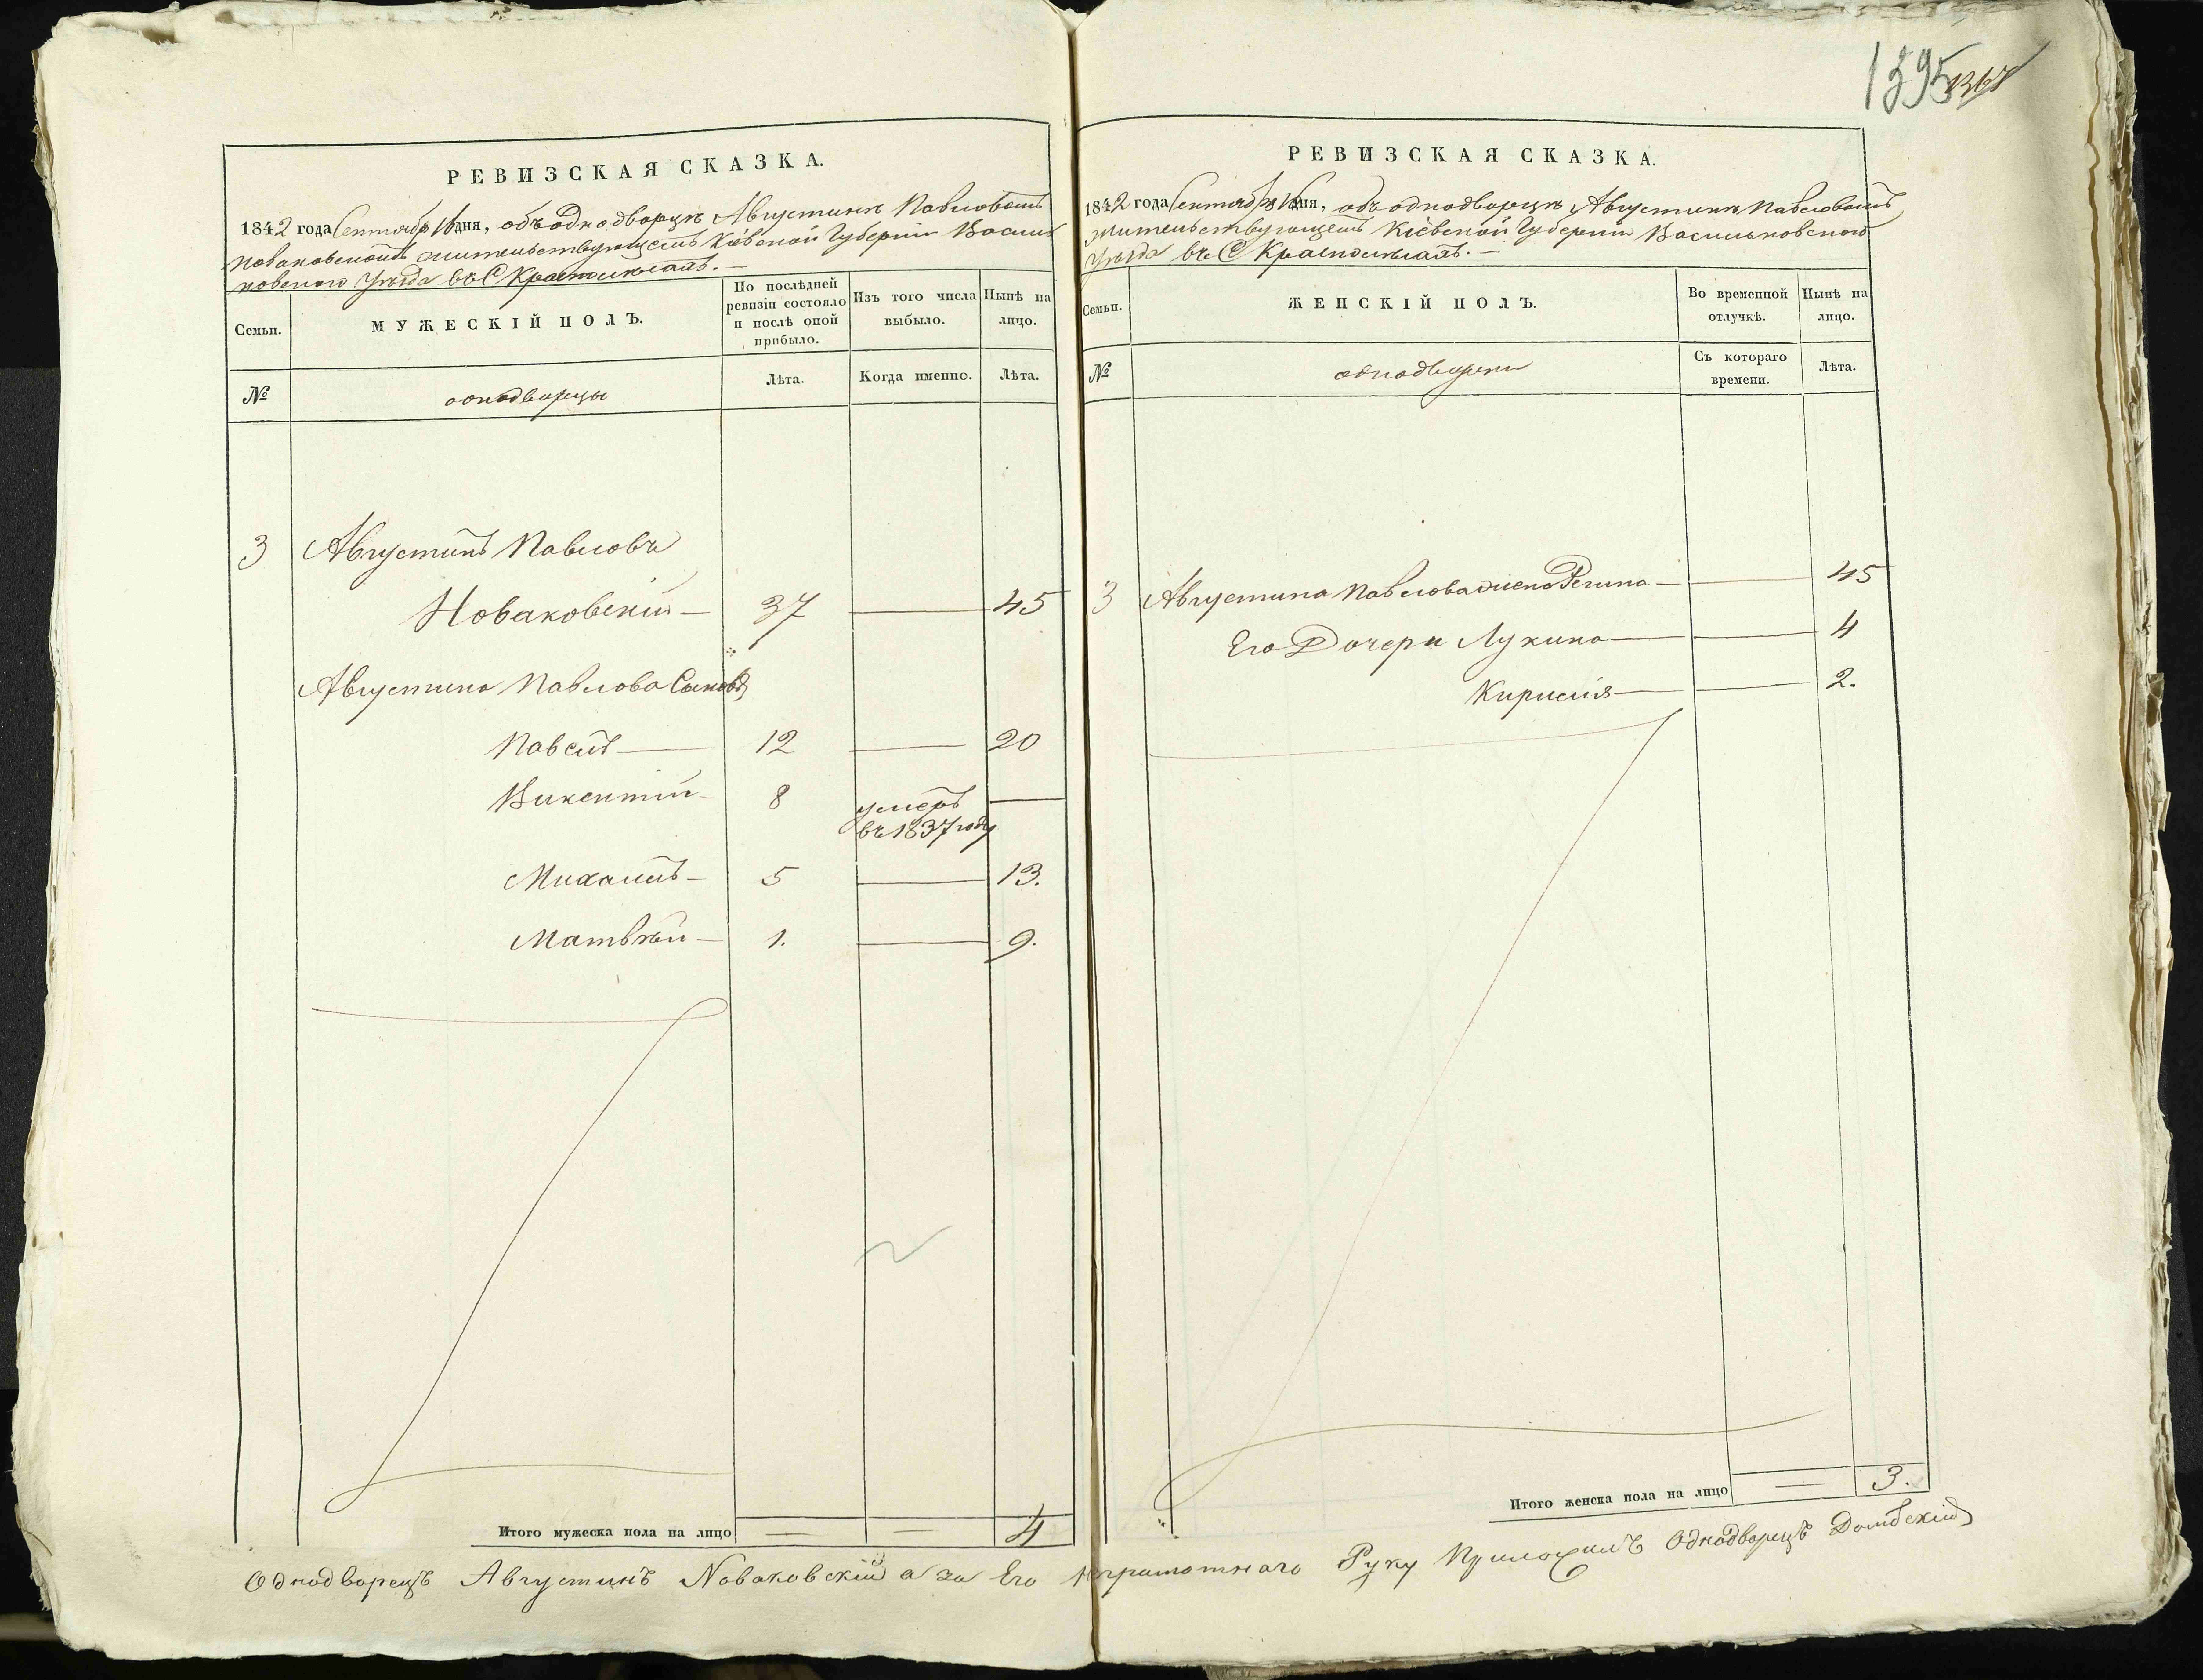 1395
РЕВИЗСКАЯ СКАЗКА.
1842 года Сентября 16 дня, объ однодворцѣ Августинѣ Павловомъ
Новаковскомъ жительствующемъ Кіевской Губерніи Василь
ковского Уѣзда въ С
Семьи.
МУЖЕСКІЙ ПОЛЪ.
По послѣдней
ревизіи состояло
и послѣ оной
прибыло.
Изъ того числа
выбыло.
Нынѣ на
лицо.
№
однодворцы
Лѣта.
Когда именно.
Лѣта.
3 Августинъ Павловъ
Новаковскій — 37 — 45
Августина Павлова Сыновья
Павелъ — 12 — 20
Викентій — 8 умеръ —
въ 1837 году
Михаилъ — 5 — 13.
Матвѣй — 1. — 9.
Итого мужеска пола на лицо = = 4
РЕВИЗСКАЯ СКАЗКА.
1842 года Сентября 16 дня, объ однодворцѣ Августинѣ Павловомъ
жительствующемъ Кіевской Губерніи Васильковского
Уѣзда въ С
Семьи.
ЖЕНСКІЙ ПОЛЪ.
Во временной
отлучкѣ.
Нынѣ на
лицо.
№
однодворки
Съ котораго
времени.
Лѣта.
3 Августина Павлова жена Регина — — 45
Его Дочери Лукина — — 4
— — 2.
Итого женска пола на лицо = 3.
Однодворецъ Августинъ Новаковскій а за Его неграмотнаго Руку Приложилъ Однодворецъ Домбскій